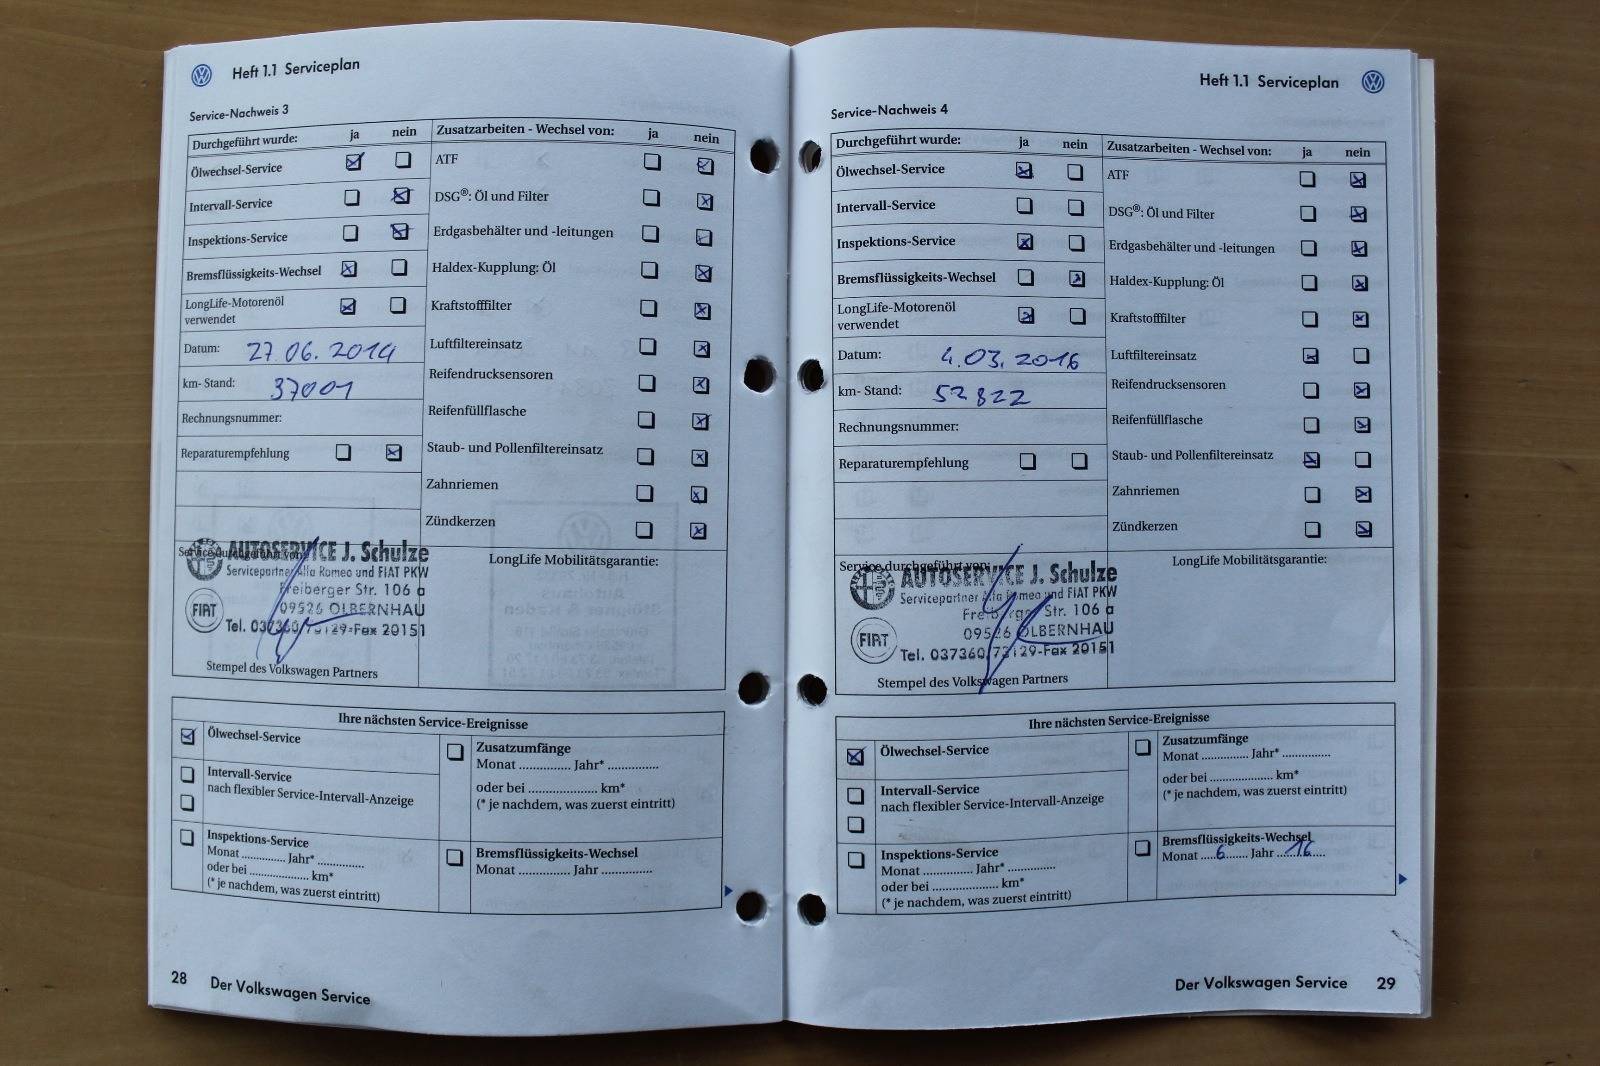 Heft 1.1 Serviceplan
Service-Nachweis 3
Durchgeführt wurde: ja nein
Ölwechsel-Service
Intervall-Service
Inspektions-Service
Bremsflüssigkeits-Wechsel
LongLife-Motorenöl
verwendet
Datum: 27 06. 2014
km- Stand: 37001
Rechnungsnummer:
Reparaturempfehlung
Zusatzarbeiten - Wechsel von: ja nein
ATF
DSG®: Öl und Filter
Erdgasbehälter und -leitungen
Haldex-Kupplung: Öl
Kraftstofffilter
Luftfiltereinsatz
Reifendrucksensoren
Reifenfüllflasche
Staub- und Pollenfiltereinsatz
Zahnriemen
Zündkerzen
Service durchgeführt von:
AUTOSERVICE J. Schulze
Servicepartner Alfa Romeo und FIAT PKW
Freiberger Str. 106 a
FIAT
09526 OLBERNHAU
Tel. 037360/73129-Fax 20151
Stempel des Volkswagen Partners
LongLife Mobilitätsgarantie:
Ihre nächsten Service-Ereignisse
Ölwechsel-Service
Intervall-Service
nach flexibler Service-Intervall-Anzeige
Inspektions-Service
Monat .............. Jahr* ..............
oder bei ........................ km*
(* je nachdem, was zuerst eintritt)
Zusatzumfänge
Monat ............... Jahr* ...............
oder bei ........................ km*
(* je nachdem, was zuerst eintritt)
Bremsflüssigkeits-Wechsel
Monat ............... Jahr ...............
28 Der Volkswagen Service
Heft 1.1 Serviceplan
Service-Nachweis 4
Durchgeführt wurde: ja nein
Ölwechsel-Service
Intervall-Service
Inspektions-Service
Bremsflüssigkeits-Wechsel
LongLife-Motorenöl
verwendet
Datum: 4.03.2016
km- Stand: 52822
Rechnungsnummer:
Reparaturempfehlung
Zusatzarbeiten - Wechsel von: ja nein
ATF
DSG®: Öl und Filter
Erdgasbehälter und -leitungen
Haldex-Kupplung: Öl
Kraftstofffilter
Luftfiltereinsatz
Reifendrucksensoren
Reifenfüllflasche
Staub- und Pollenfiltereinsatz
Zahnriemen
Zündkerzen
Service durchgeführt von:
AUTOSERVICE J. Schulze
Servicepartner Alfa Romeo und FIAT PKW
Freiberger Str. 106 a
FIAT
09526 OLBERNHAU
Tel. 037360/73129-Fax 20151
Stempel des Volkswagen Partners
LongLife Mobilitätsgarantie:
Ihre nächsten Service-Ereignisse
Ölwechsel-Service
Intervall-Service
nach flexibler Service-Intervall-Anzeige
Inspektions-Service
Monat .............. Jahr* ..............
oder bei ........................ km*
(* je nachdem, was zuerst eintritt)
Zusatzumfänge
Monat ............... Jahr* ...............
oder bei ........................ km*
(* je nachdem, was zuerst eintritt)
Bremsflüssigkeits-Wechsel
Monat ....6....... Jahr ....16....
Der Volkswagen Service 29